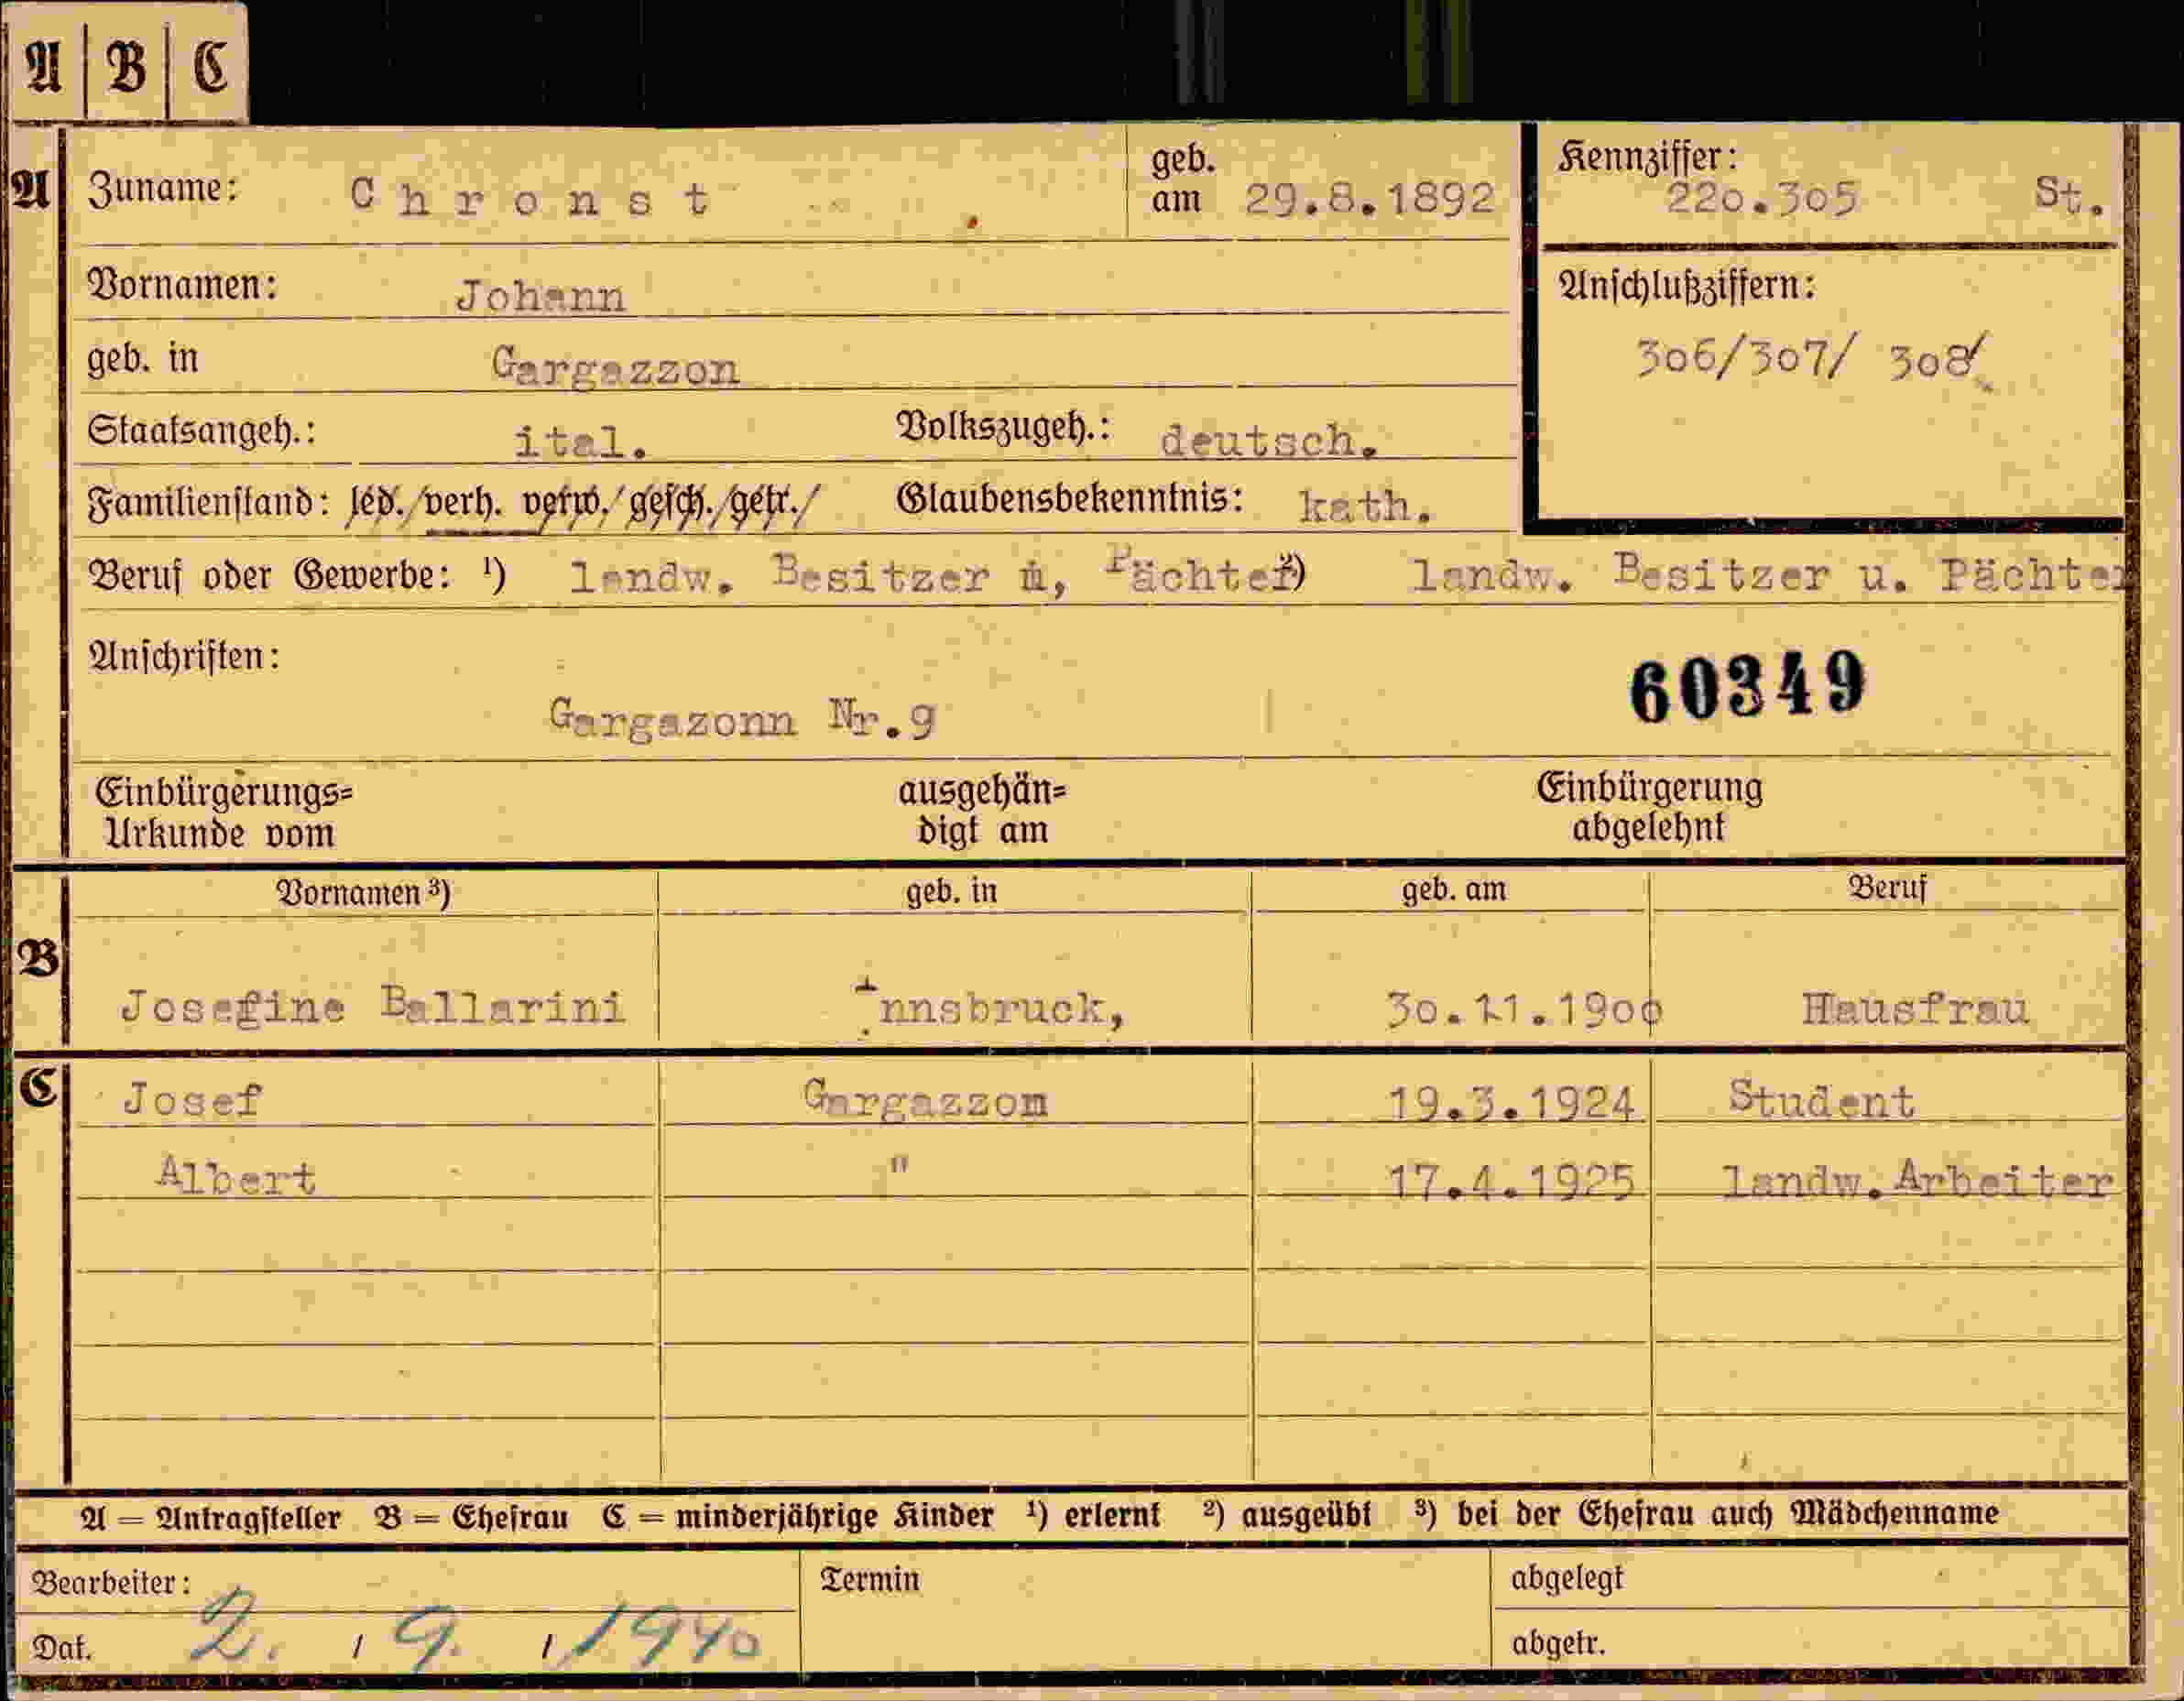 A B C
A Zuname: Chronst geb. am 29.8.1892 Kennziffer: 220.305 St.
Vornamen: Johann Anschlußziffern:
306/307/ 308/
geb. in Gargazzon
Staatsangeh.: ital. Volkszugeh.: deutsch.
Familienstand: led./verh. verw./gesch./getr./ Glaubensbekenntnis: kath.
Beruf oder Gewerbe: ¹) landw. Besitzer u, Pächter ²) landw. Besitzer u. Pächter
Anschriften:
Gargazonn Nr.9 60349
Einbürgerungs= ausgehän= Einbürgerung
Urkunde vom digt am abgelehnt
Vornamen ³) geb. in geb. am Beruf
B
Josefine Ballarini Innsbruck, 30.11.1900 Hausfrau
C Josef Gargazzon 19.3.1924 Student
Albert " 17.4.1925 landw.Arbeiter
A = Antragsteller B = Ehefrau C = minderjährige Kinder ¹) erlernt ²) ausgeübt ³) bei der Ehefrau auch Mädchenname
Bearbeiter: Termin abgelegt
Dat. 2. / 9. / 1940 abgetr.